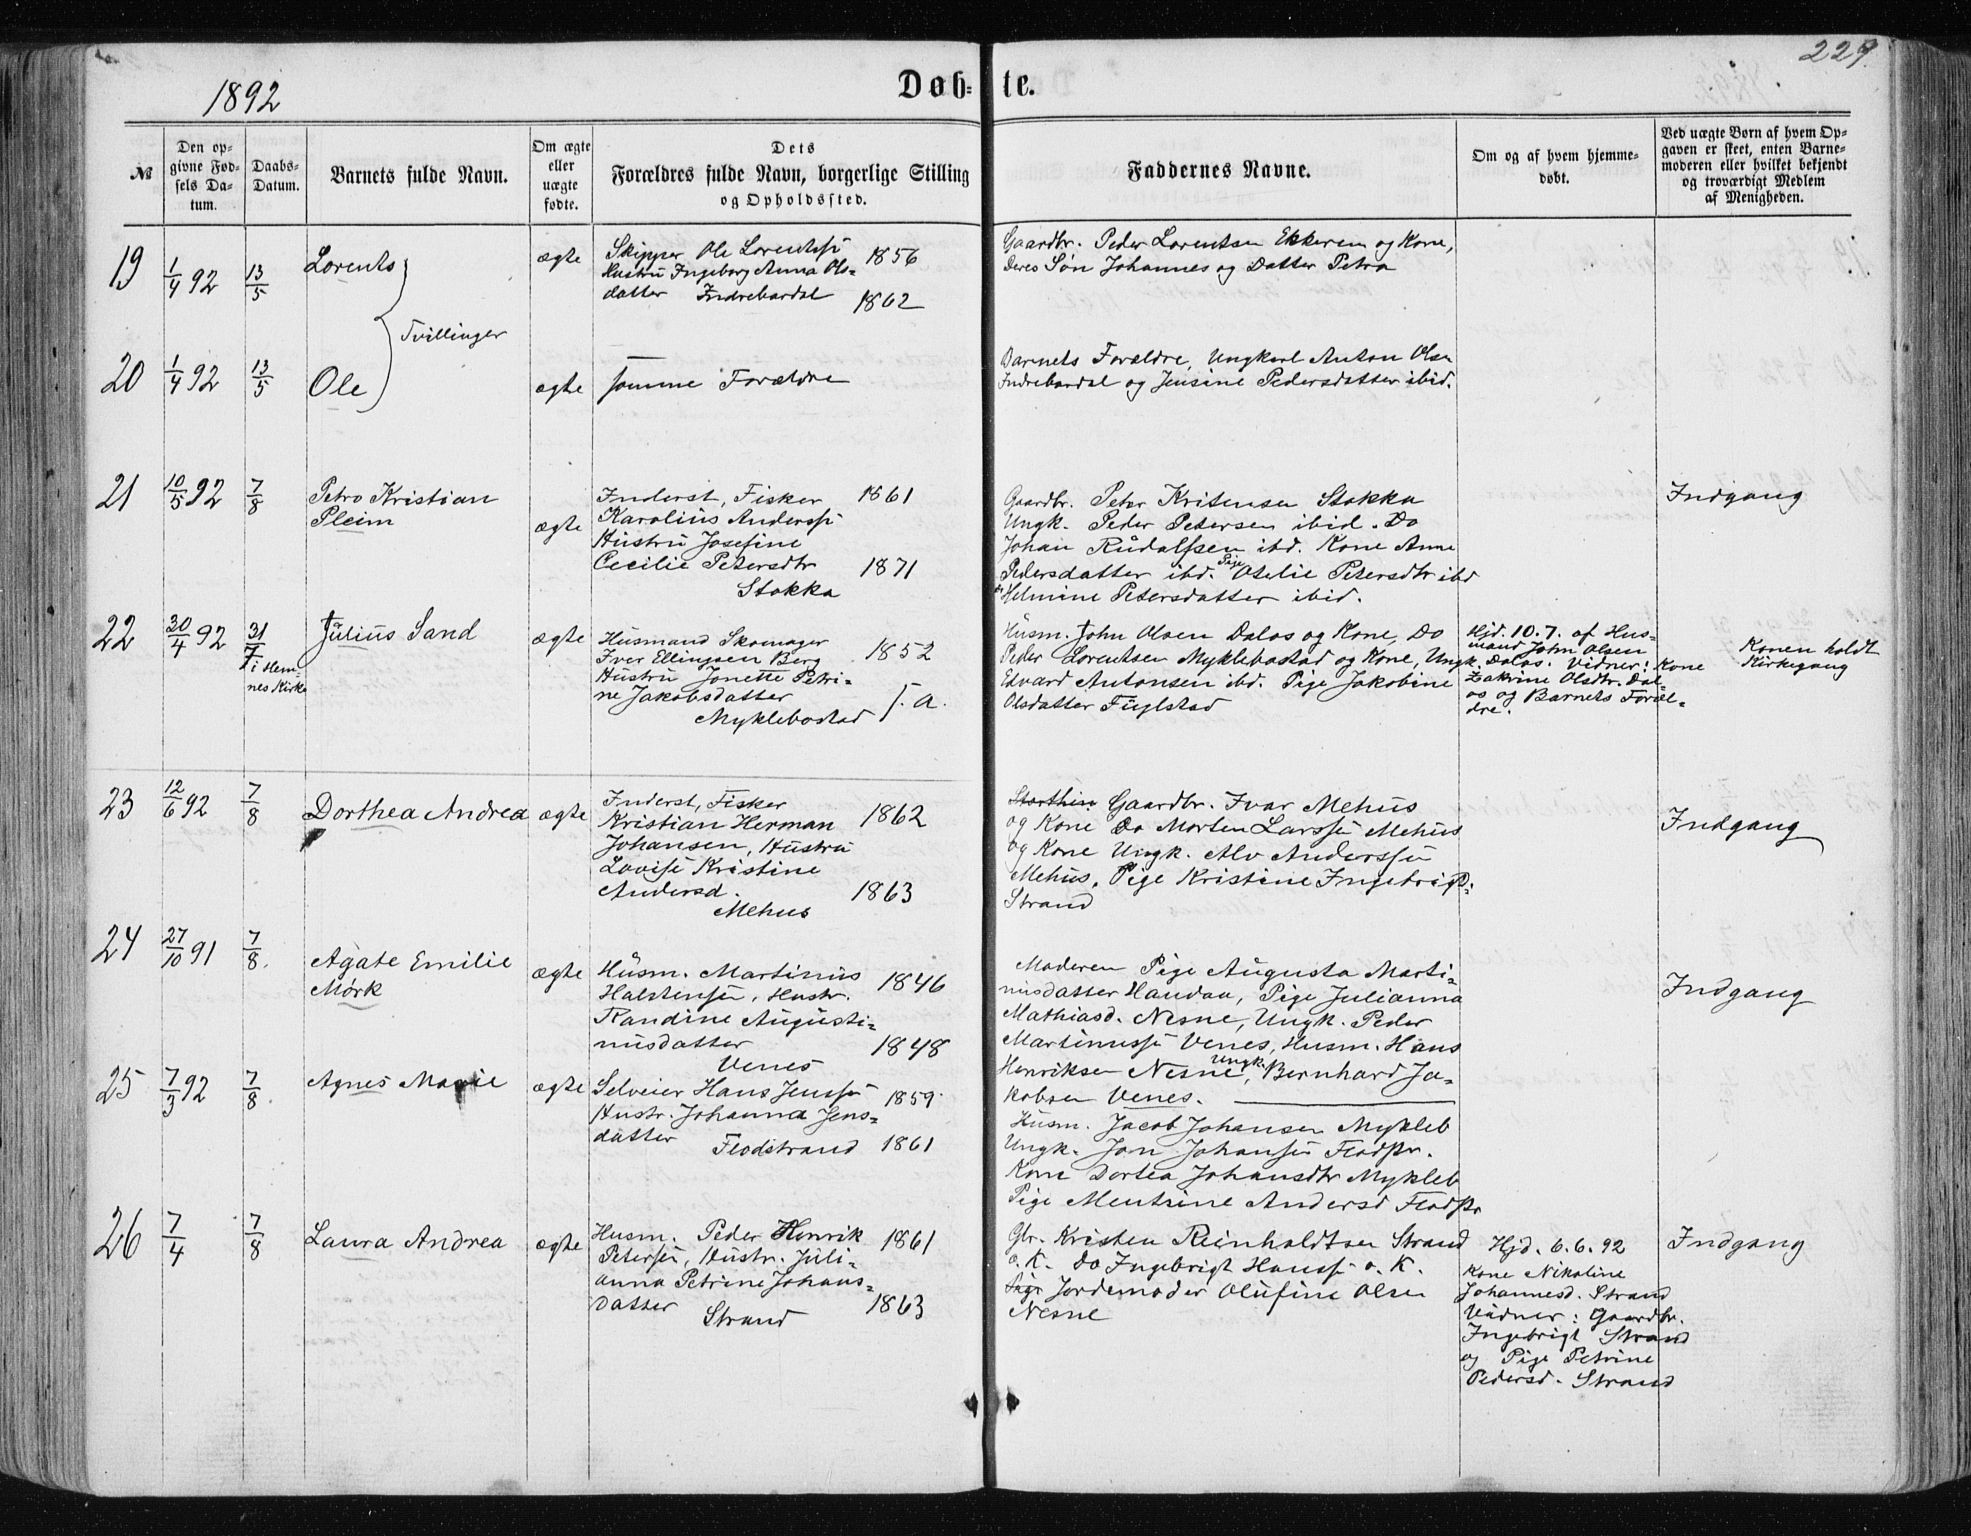 229
1892
Døb- te.
№
Den op-
givne Fød-
sels Da-
tum.
Daabs-
Datum.
Barnets fulde Navn.
Om ægte
eller
uægte
fødte.
Dets
Forældres fulde Navn, borgerlige Stilling
og Opholdssted.
Faddernes Navne.
Om og af hvem hjemme-
døbt.
Ved uægte Børn af hvem Op-
gaven er skeet, enten Barne-
moderen eller hvilket bekjendt
og troværdigt Medlem
af Menigheden.
19
1/4 92
13/5
Lorents
Tvillinger
ægte
Skipper Ole Lorentsen 1856
Hustru Ingeborg Anna Ols-
datter Indrebardal 1862
Gaardbr. Peder Lorentsen Ekkeren og Kone,
deres Søn Johannes og Datter Petra
20
1/4 92
13/5
Ole
ægte
samme Forældre
Barnets Forældre, Ungkarl Anton Olsen
Indrebardal og Jensine Pedersdatter ibid.
21
10/5 92
7/8
Petro Kristian
Pleim
ægte
Inderst, Fisker 1861
Karolius Anderssen
Hustru Josefine
Cecilie Petersdtr 1871
Stokka
Gaardbr. Peter Kritensen Stokka
Ungk. Peder Petersen ibid. Do
Johan Rudolfsen ibd. Kone Anne
Pedersdatter ibd. Pige Otelie Petersdtr ibd
Helmine Petersdatter ibid.
Indgang
22
30/4 92
31/7 i Hem-
nes Kirke
Julius Sand
ægte
Husmand Skomager
Iver Ellingsen Berg 1852
Hustru Jonette Petri-
ne Jakobsdatter
Myklebostad s. a.
Husm. John Olsen Dalos og Kone, Do
Peder Lorentsen Myklebostad og Kone, Ungk.
Edvard Antonsen ibd. Pige Jakobine
Olsdatter Fuglstad
Hjd. 10.7. af Hus-
mand John Olsen
Dalos. Vidner: Kone
Zakrine Olsdtr. Dal-
os og Barnets Foræl-
dre.
Konen holdt
Kirkegang
23
12/6 92
7/8
Dorthea Andrea
ægte
Inderst, Fisker
Kristian Herman 1862
Johansen, Hustru
Lovise Kristine
Andersd. 1863
Mehus
Gaardbr. Ivar Mehus
og Kone Do Morten Larssen Mehus
og Kone Ungk. Alv Anderssen
Mehus, Pige Kristine Ingebrigtsd.
Strand
Indgang
24
27/10 91
7/8
Agate Emilie
Mørk
ægte
Husm. Martinus 1846
Halstensen, Hustr.
Randine Augusti-
nusdatter 1848
Venes
Moderen Pige Augusta Marti-
nusdatter Handaa, Pige Julianna
Mathiasd. Nesne, Ungk. Peder
Martinussen Venes, Husm. Hans
Henriksen Nesne, Ungk. Bernhard Ja-
kobsen Venes.
Indgang
25
7/3 92
7/8
Agnes Marie
ægte
Selveier Hans Jenssen 1859
Hustr. Johanna Jens-
datter Flodstrand 1861
Husm. Jacob Johansen Mykleb
Ungk. Jon Johansen Flodstr.
Kone Dortea Johansdtr Mykleb
Pige Mentrine Andersd Flodstr
26
7/4
7/8
Laura Andrea
ægte
Husm. Peder Henrik 1861
Petersen, Hustr. Juli-
anna Petrine Johans-
datter 1863
Strand
Gbr. Kristen Reinholdtsen Strand
o. K. Do Ingebrigt Hanssen o. K.
Pige Jordemoder Olufine Olsen
Nesne
Hjd. 6.6.92
Kone Nikoline
Johannesd. Strand
Vidner: Gaardbr.
Ingebrigt Strand
og Pige Petrine
Pedersd. Strand
Indgang